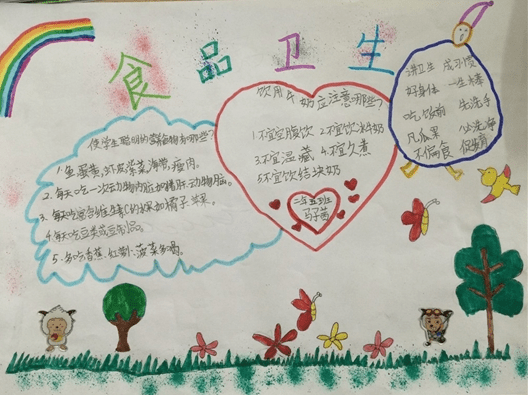 食品卫生
使学生聪明的食物有哪些?
1.鱼、蛋黄、虾皮、紫菜、海带、瘦肉。
2.每天吃一次动物内脏如猪肝、动物脑。
3.每天吃富含维生素C的水果如橘子、苹果。
4.每天吃豆类或豆制品。
5.多吃香蕉、红
饮用牛奶应注意哪些?
1.不宜空腹饮 2.不宜饮冰奶
3.不宜温藏 4.不宜久煮
5.不宜饮结块奶
二年五班
讲卫生 成习惯
好身体 一生棒
吃饭前 先洗手
凡瓜果 必洗净
不偏食 保发育